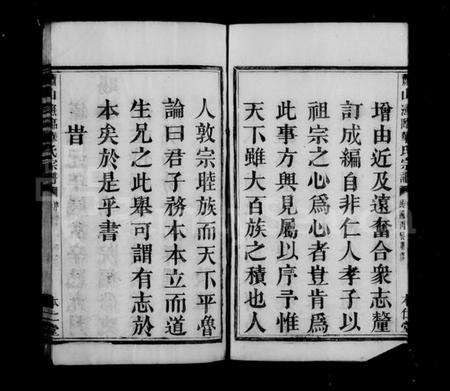 增由近及遠奮合衆志釐
訂成編自非仁人孝子以
祖宗之心爲心者豈肯爲
此事方與見屬以序予惟
天下雖大百族之積也人
人敦宗睦族而天下平魯
論曰君子務本本立而道
生兄之此舉可謂有志於
本矣於是乎書
昔